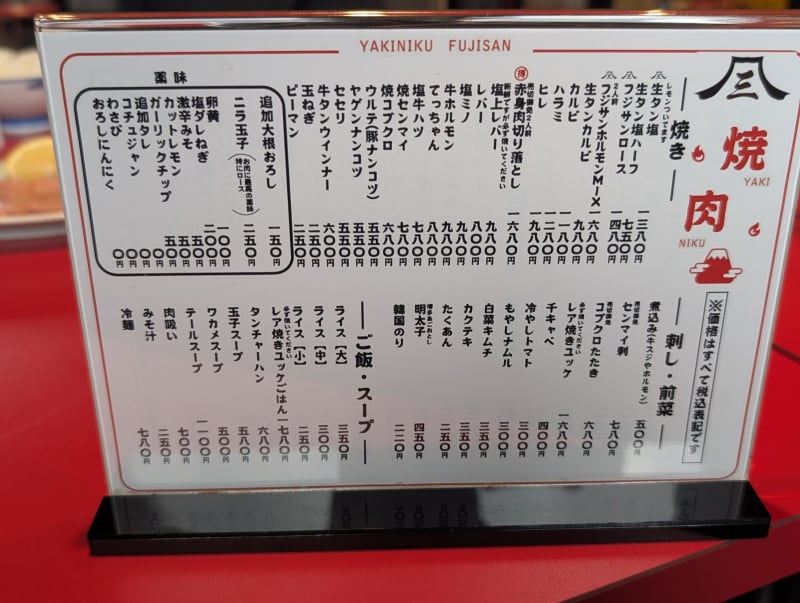 YAKINIKU FUJISAN
焼
YAKI
肉
NIKU
※価格はすべて税込表記です
焼き
レモンついてます
生タン塩 一三八〇円
生タン塩ハーフ 七五〇円
フジサンロース 一四八〇円
2人前
フジサンホルモンMIX 一六八〇円
生タンカルビ 九八〇円
カルビ 一一八〇円
ハラミ 一二八〇円
ヒレ 一九八〇円
得
売切御免2人前
赤身肉切り落とし 一六八〇円
新鮮ですが必ず焼いてください
塩上レバー 九八〇円
レバー 八〇〇円
塩ミノ 九八〇円
牛ホルモン 九八〇円
てっちゃん 八八〇円
塩牛ハツ 七八〇円
焼センマイ 七八〇円
焼コブクロ 六八〇円
ウルテ(豚ナンコツ) 五五〇円
ヤゲンナンコツ 五五〇円
セセリ 五五〇円
牛タンウィンナー 六〇〇円
玉ねぎ 二五〇円
ピーマン 二五〇円
薬味
追加大根おろし 一五〇円
ニラ玉子 二五〇円
(お肉に最高の薬味 特にロース)
卵黄 一〇〇円
塩ダレねぎ 二〇〇円
激辛みそ 五〇円
カットレモン 五〇円
ガーリックチップ 五〇円
追加タレ 〇円
コチュジャン 〇円
わさび 〇円
おろしにんにく 〇円
刺し・前菜
煮込み(牛スジやホルモン) 五〇〇円
売切御免
センマイ刺 七八〇円
売切御免
コブクロたたき 六八〇円
必ず焼いてください
レア焼きユッケ 一六八〇円
千キャベ 四〇〇円
冷やしトマト 三〇〇円
もやしナムル 三〇〇円
白菜キムチ 三五〇円
カクテキ 三五〇円
たくあん 二五〇円
博多あごおとし
明太子 四五〇円
韓国のり 二二〇円
ご飯・スープ
ライス[大] 三五〇円
ライス[中] 三〇〇円
ライス[小] 二五〇円
必ず焼いてください
レア焼きユッケごはん 一七八〇円
タンチャーハン 六八〇円
玉子スープ 五八〇円
ワカメスープ 五八〇円
テールスープ 一一〇〇円
肉吸い 七〇〇円
みそ汁 二五〇円
冷麺 七八〇円